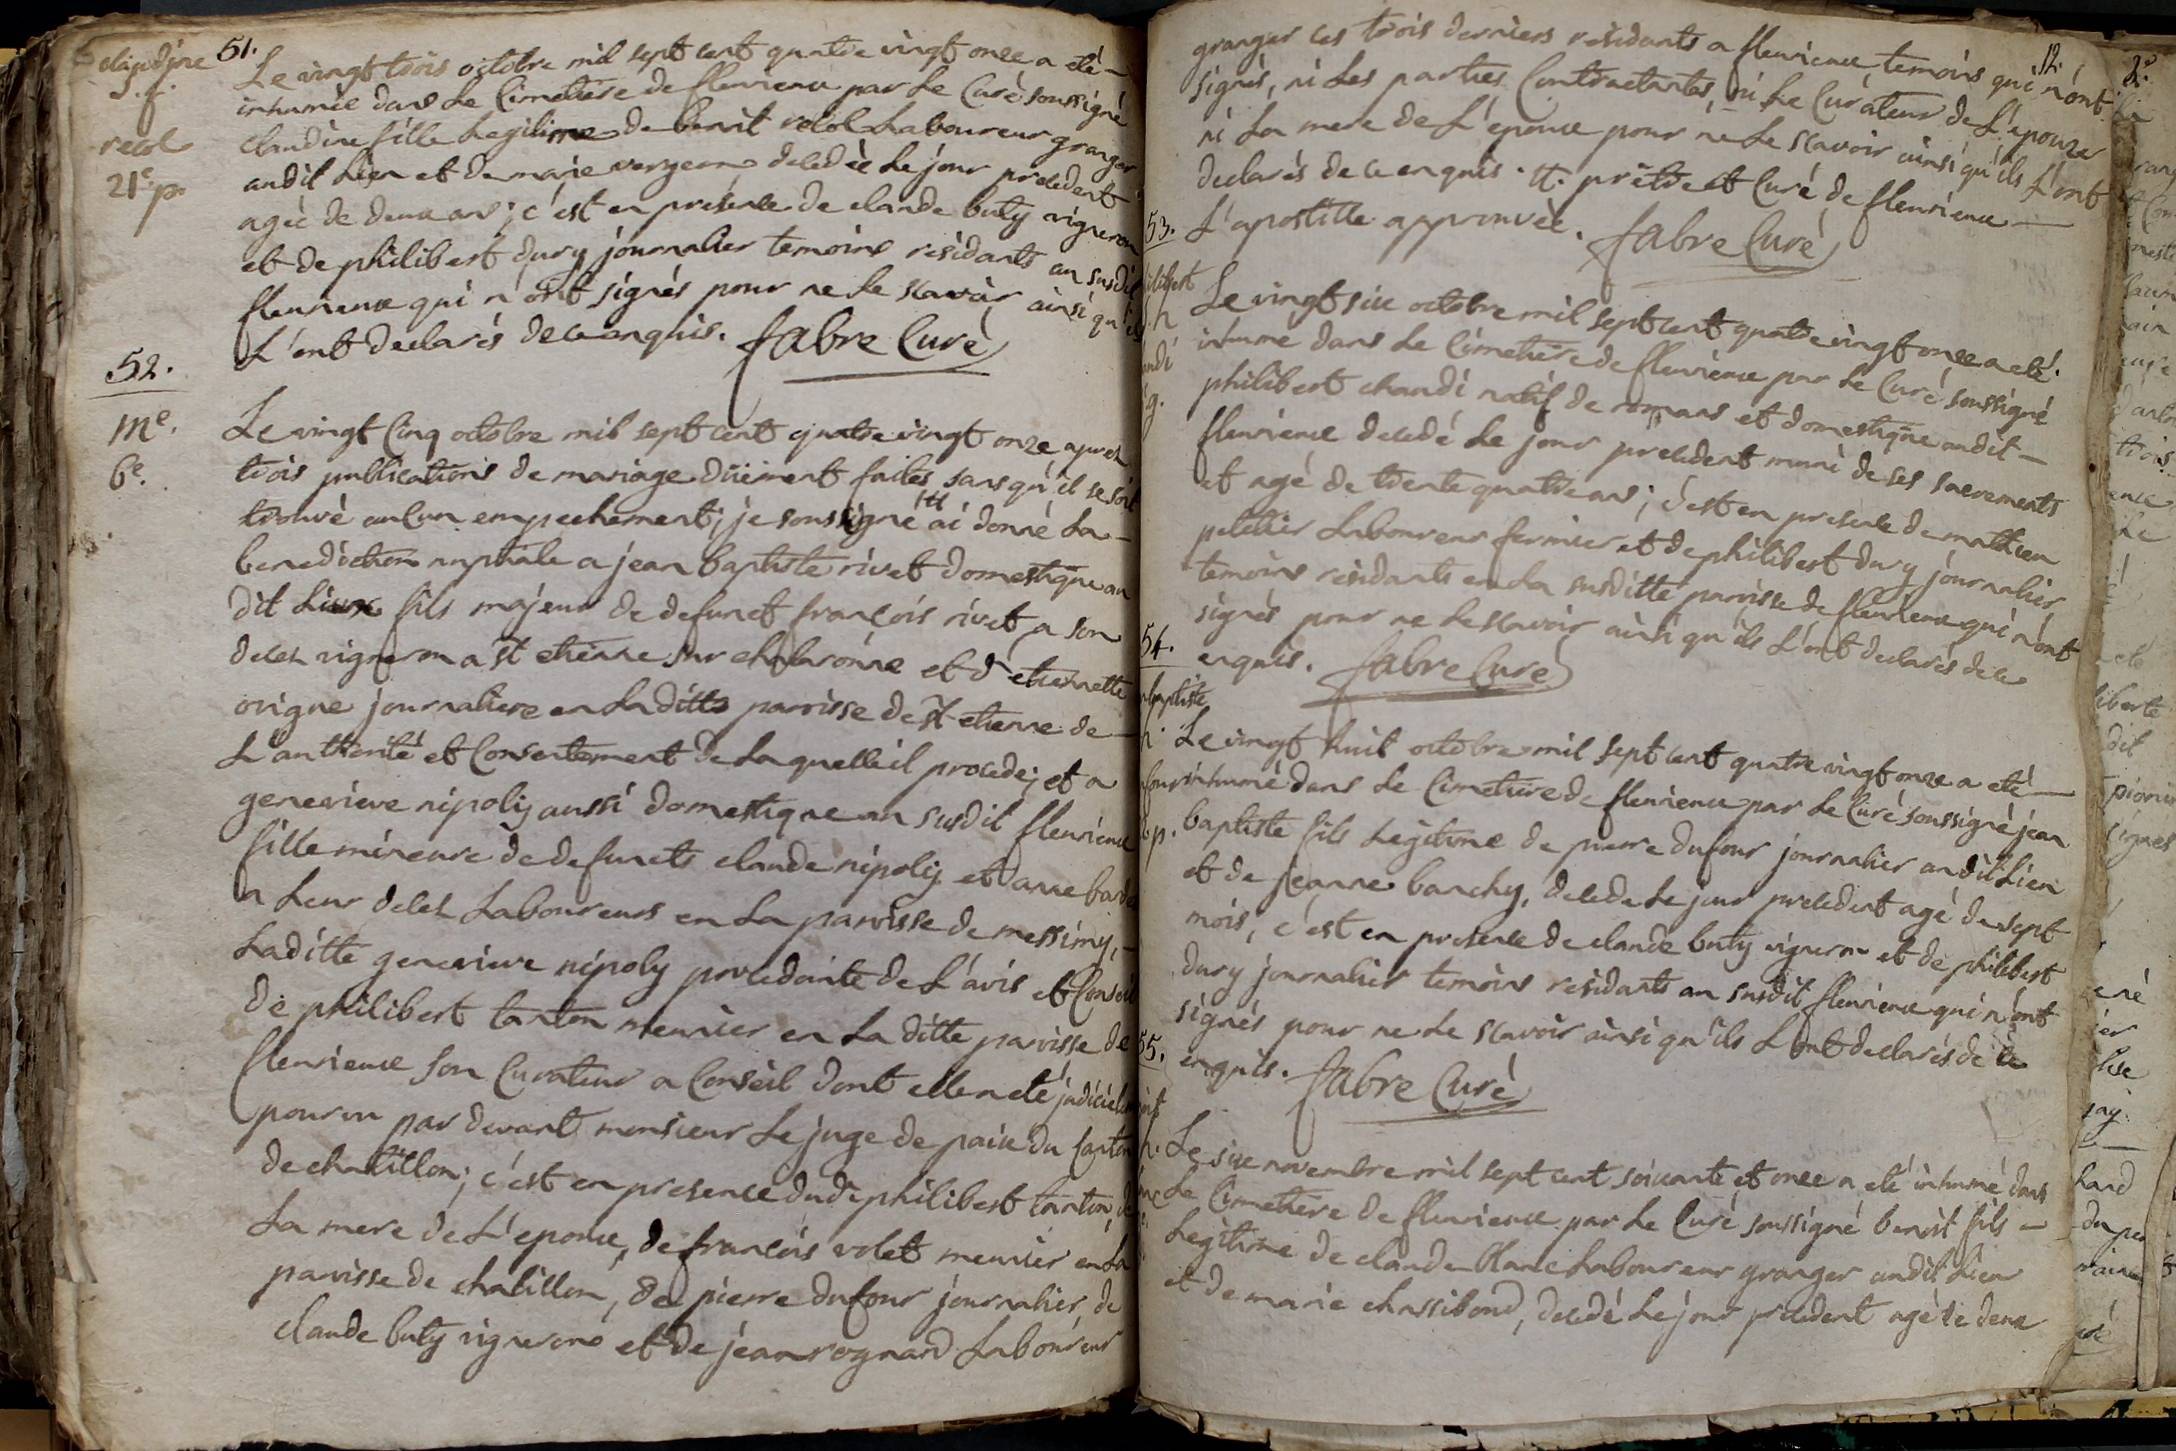 51.
claudine
s.f.
recol
21e p.
Le vingt trois octobre mil sept cent quatre vingt onze a eté
inhumée dans Le Cimetiere de fleurieux par Le Curé soussigné
claudine fille Legitime de benoit recol Laboureur granger
audit Lieu et de marie vergeon decedée Le jour precedent
ageé de deux ans; c'est en presence de claude buty vigneron
et de philibert dury journalier temoins residants au susdit
fleurieux qui n'ont signés pour ne Le scavoir ainsi qu'ils
L'ont declarés de ce enquis. fabre Curé
52.
me.
6e.
Le vingt Cinq octobre mil sept cent quatre vingt onze apres
trois publications de mariage düement faites sans qu'il se soit
trouvé aucun empechement; je soussigné tt ai donné La
benediction nuptiale a jean baptiste rivet domestique au
dit Lieux fils majeur de defunct françois rivet a son
deces vigneron a st etienne sur chalaronne et d'etiennette
ovigne journaliere en Laditte paroisse de st etienne de
L'authorité et Consentement de Laquelle il procede; et a
genevieve nipoly aussi domestique au susdit fleurieux
fille mineure de defuncts claude nipoly et anne
a Leur deces Laboureurs en La paroisse de messimy,
Laditte genevieve nipoly procedante de L'avis et Conseil
de philibert tanton meunier en La ditte paroisse de
fleurieux son Curateur a Conseil dont elle a eté
pourvu par devant monsieur Le juge de paix du Canton
de chatillon; c'est en presence dudt philibert tanton, de
La mere de L'epoux, de françois volet meunier en La
paroisse de chatillon, de pierre dufour journalier, de
claude buty vigneron et de jean rognard Laboureur
12.
granger ces trois derniers residants a fleurieux temoins qui n'ont
signés, ni Les parties Contractantes, ni Le Curateur de L'epouze
ni La mere de L'epoux pour ne Le scavoir ainsi qu'ils L'ont
declarés de ce enquis. tt. prêtre et Curé de fleurieux
L'apostille approuvée. fabre Curé
53.
Le vingt six octobre mil sept cent quatre vingt onze a eté
inhumé dans Le Cimetiere de fleurieux par Le Curé soussigné
philibert chandi natif de romans et domestique audit
fleurieux decedé Le jour precedent muni de ses sacrements
et agé de trente quatre ans; c'est en presence de mathieu
peletier Laboureur fermier et de philibert dury journalier
temoins residants en La susditte paroisse de fleurieux qui n'ont
signés pour ne Le scavoir ainsi qu'ils L'ont declarés de ce
enquis. fabre Curé
54.
baptiste
Le vingt huit octobre mil sept cent quatre vingt onze a eté
inhumé dans Le Cimetiere de fleurieux par Le Curé soussigné jean
baptiste fils Legitime de pierre dufour journalier audit Lieu
et de jeanne banchy, decede Le jour precedent agé de sept
mois, c'est en presence de claude buty vigneron et de philibert
dury journalier temoins residants au susdit fleurieux qui n'ont
signés pour ne Le scavoir ainsi qu'ils L'ont declarés de ce
enquis. fabre Curé
55.
Le six novembre mil sept cent soixante et onze a eté inhumé dans
Le Cimetiere de fleurieux par Le Curé soussigné benoit fils
Legitime de claude blanc Laboureur granger audit Lieu
et de marie chassibond, decedé Le jour precedent agé de deux